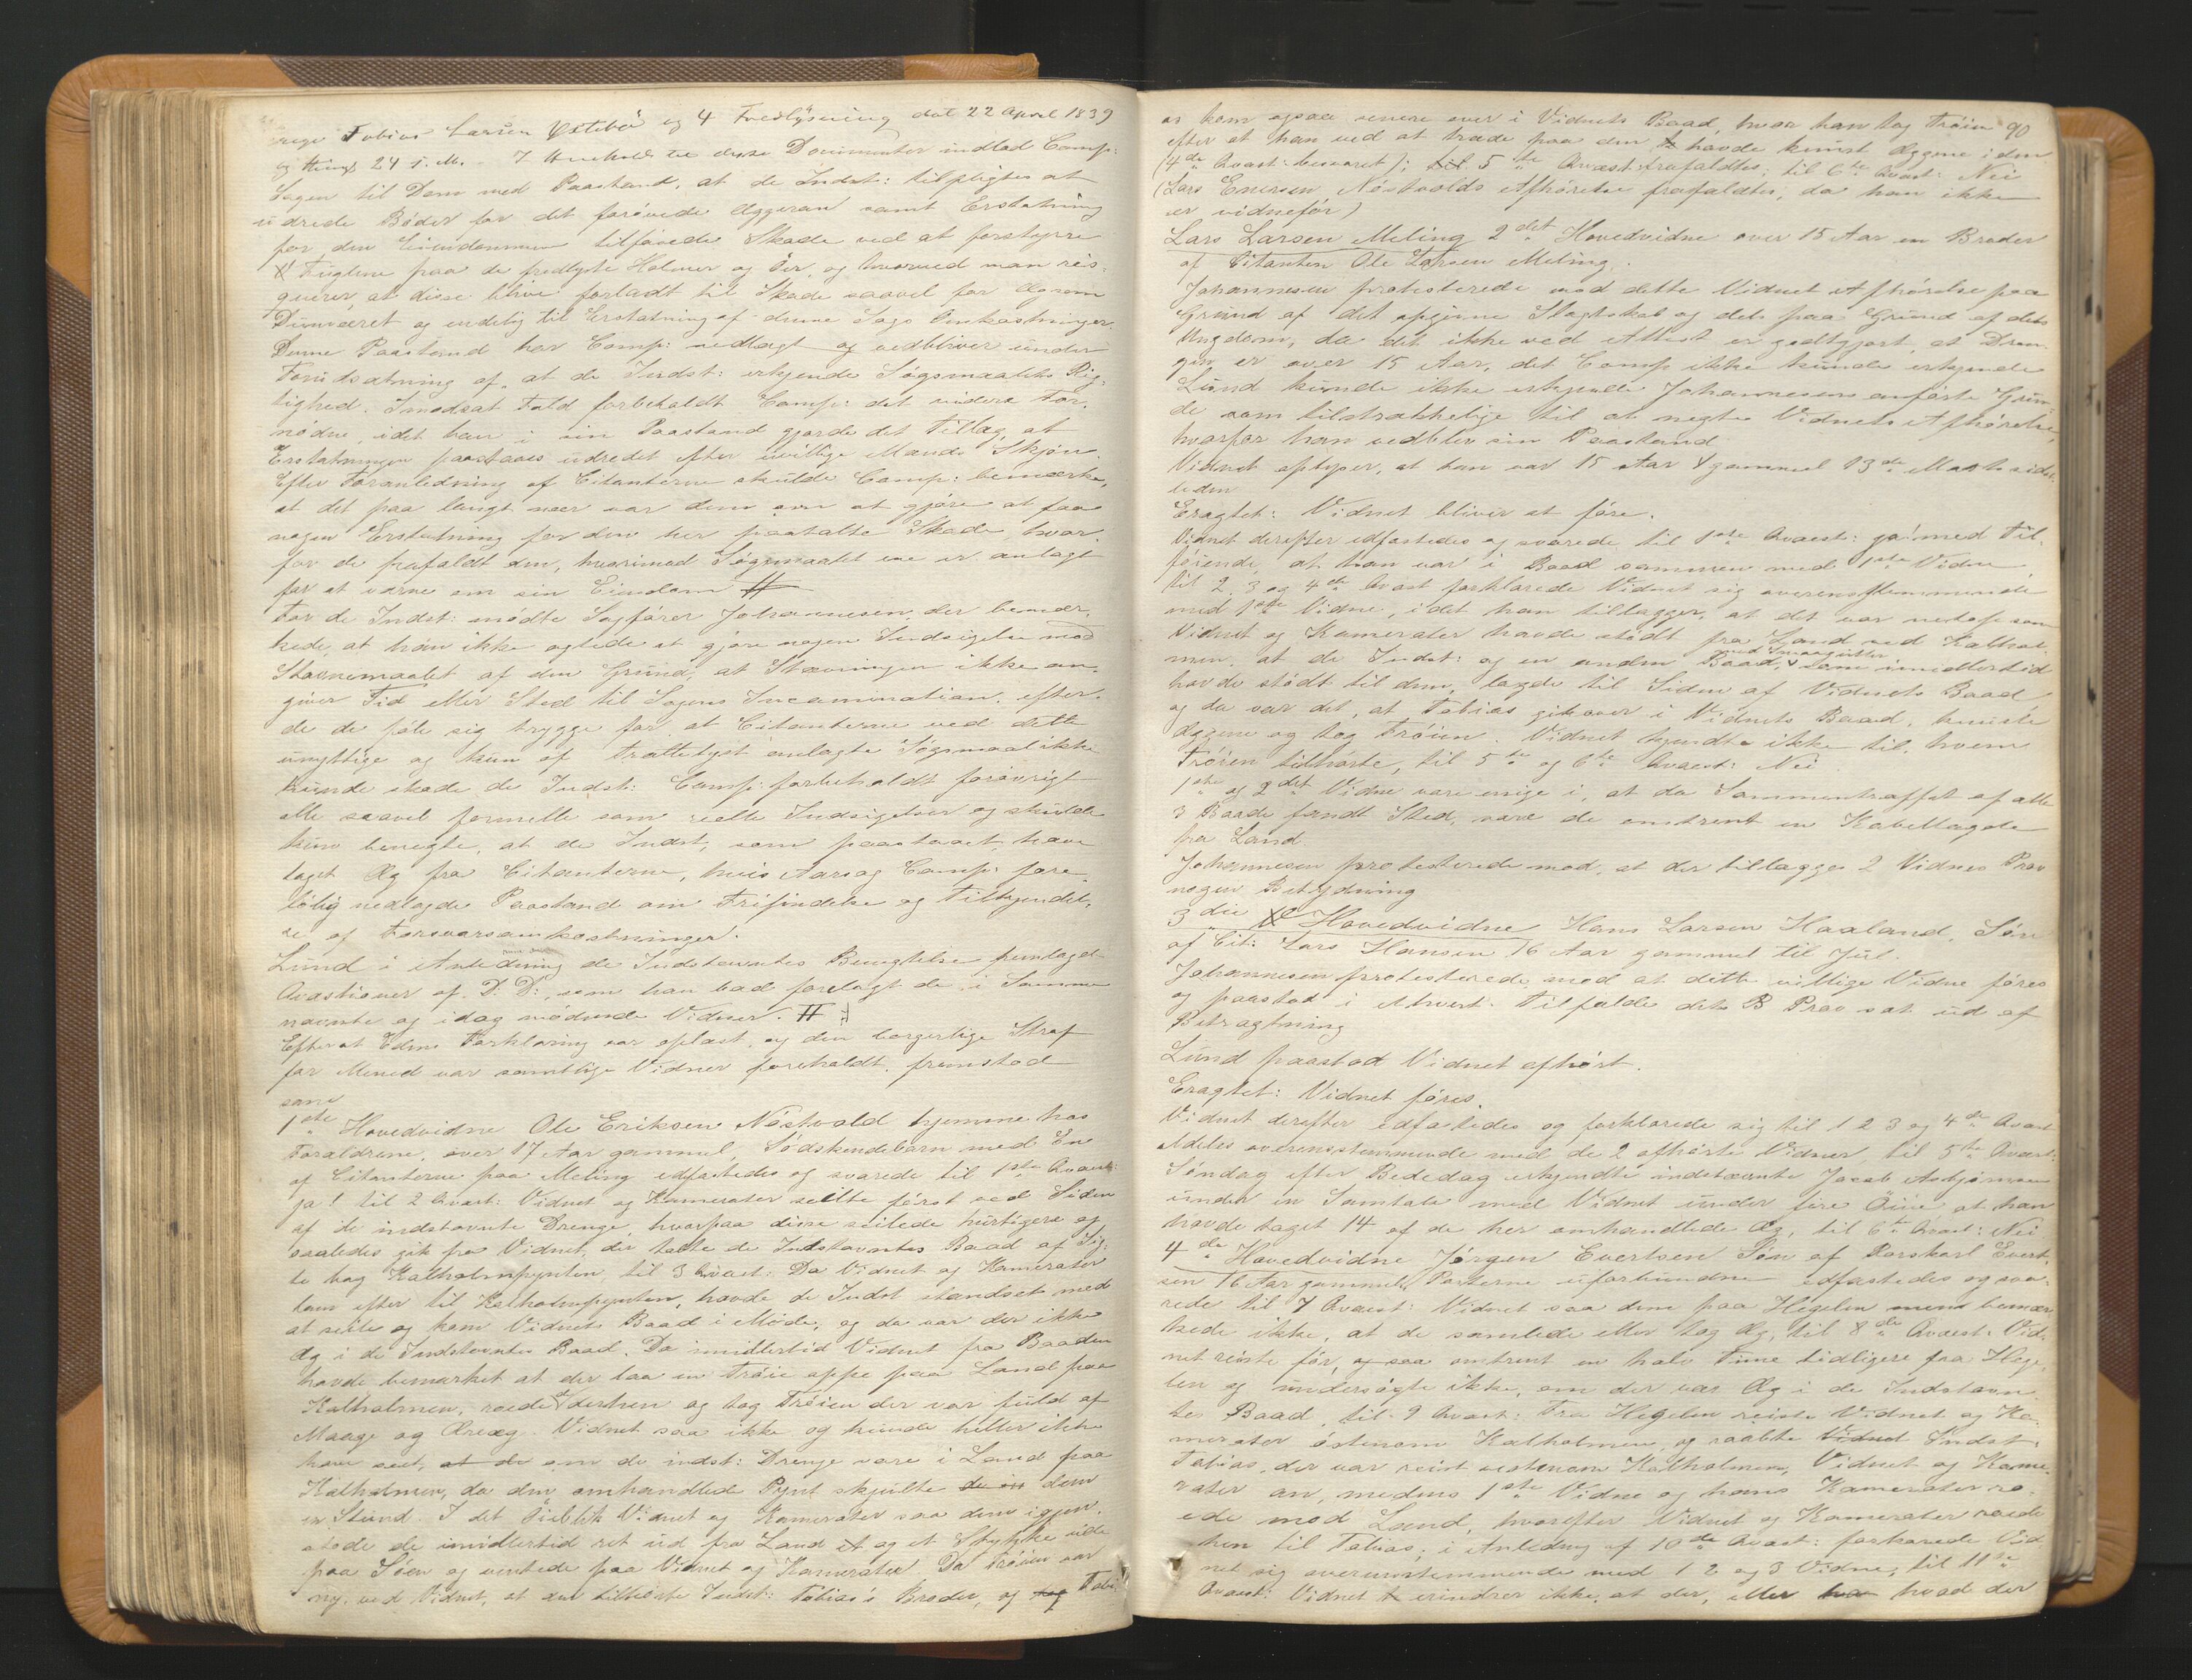 Tobias Larsen Østebø og 4 Fredlysning dat 22 April 1839
og thingl 24 s. M. I Henhold til disse Documenter indlod Comp:
Sagen til Dom med Paastand, at de Indst: tilpligtes at
udrede Bøder for det forøvede Æggeran samt Erstatning
for den Eiendommen tilføiede Skade ved at forstyrre
Fuglene paa de fredlyste Holmer og Øer, og hvorved man ris-
querer, at disse blive forladt til Skade saavel for Æg som
Duunværet og endelig til Erstatning af denne Sags Omkostninger.
Denne Paastand har Comp: nedlagt og vedbliver under
Forudsætning af, at de Indst: erkjende Søgsmaalets Rig-
tighed. I modsat Fald forbeholdt Comp: det videre For-
nødne, idet han i sin Paastand gjorde det Tillæg at
Erstatningen paastaaes udredet efter uvillige Mænds Skjøn.
Efter Foranledning af Citanterne skulde Comp: bemærke,
at det paa langt nær var dem om at gjøre at faa
nogen Erstatning for den her paatalte Skade, hvor-
for de frafaldt den, hvorimod Søgsmaalet ene er anlagt
for at værne om sin Eiendom #
For de Indst: mødte Sagfører Johannesen der bemær-
kede, at han ikke agtede at gjøre nogen Indsigelse mod
Stævnemaalet af den Grund, at Stævningen ikke an-
giver Tid eller Sted til Sagens Incamination, efter-
de de føle sig trygge for at Citanterne ved dette
unyttige og kun af Trættelyst anlagte Søgsmaal ikke
kunde skade de Indst: Comp: forbeholdt forøvrigt
alle saavel formelle som reelle Indsigelser og skulde
kun benegte, at de Indst, som paastaaet, have
taget Æg fra Citanterne, hvis Aarsag Comp: fore-
løbig nedlagde Paastand om Frifindelse og Tilkjendel-
se af Forsvarsomkostninger.
Lund i Anledning de Indstævntes Benegtelse fremlagde
Qvæstioner af D: D:, som han bad forelagt de i Samme
nævnte og idag mødende Vidner. #
Efterat Edens Forklaring var oplæst, og den borgerlige Straf
for Meened var samtlige Vidner foreholdt, fremstod
som
1ste Hovedvidne Ole Eriksen Nøstvold hjemme hos
Forældrene, over 17 Aar gammel, Sødskendebarn med En
af Citanterne paa Meling edfæstedes og svarede til 1ste Qvæst:
ja! til 2 Qvæst: Vidnet og Kamerater seilte først ved Siden
af de indstævnte Drenge, hvorpaa disse seilede hurtigere og
saaledes gik fra Vidnet, der tabte de Indstævntes Baad af Sig-
te bag Kalholmpynten, til 3 Qvæst: Da Vidnet og Kamerater
kom efter til Kalholmpynten, havde de Indst standset med
at seile og kom Vidnets Baad i Møde, og da var der ikke
Æg i de Indstævntes Baad. Da imidlertid Vidnet fra Baaden
havde bemærket at der laa en Trøie oppe paa Land paa
Kalholmen, roede de derhen og tog Trøien der var fuld af
Maage og Æreæg. Vidnet saa ikke og kunde heller ikke
have seet, at de om de indst: Drenge vare i Land paa
Kalholmen, da den omhandlede Pynt skjulte de in dem
en Stund. I det Øieblik Vidnet og Kamerater saa dem igjen,
stode de imidlertid ret ud fra Land et og et Stykke ude
paa Søen og ventede paa Vidnet og Kamerater. Da Trøien var
ny, ved Vidnet, at den tilhørte Indst: Tobias's Broder, og tog Tobi-
as kom ogsaa senere over i Vidnets Baad, hvor han tog Trøien 90
efter at han ved at træde paa den havde knust Æggene i den
(4de Qvæst: besvaret); til 5te Qvæst: frafaldtes; til 6te Qvæst: Nei
(Lars Enersen Nøstvolds Afhørelse frafaldtes, da han ikke
er vidnefør)
Lars Larsen Meling 2det Hovedvidne over 15 Aar en Broder
af Citanten Ole Larsen Meling.
Johannesen protesterede mod dette Vidnes Afhørelse paa
Grund af det opgivne Slægtskab og dels paa Grund af dets
Ungdom, da det ikke ved Attest er godtgjort, at Dren-
gen er over 15 Aar, det Comp ikke kunde erkjende
Lund kunde ikke erkjende Johannesens anførte Grun-
de som tilstrækkelige til at negte Vidnets Afhørelse,
hvorfor han vedblev sin Paastand
Vidnet oplyser, at han var 15 Aar gammel 13de Marts sidst-
leden
Eragtet: Vidnet bliver at føre.
Vidnet derefter edfæstedes og svarede til 1ste Qvæst: ja! med Til-
føiende, at han var i Baad sammen med 1ste Vidne.
til 2. 3 og 4de Qvæst forklarede Vidnet sig overensstemmende
med 1ste Vidne, idet han tillægger, at det var netop som
Vidnet og Kamerater havde stødt fra Land ved Kalhol-
men, at de Indst: og en anden Baad, med Smaagutter som imidlertid
havde stødt til dem, lagde til Siden af Vidnets Baad
og da var det, at Tobias gik over i Vidnets Baad, knuste
Æggene og tog Trøien. Vidnet kjendte ikke til, hvem
Trøien tilhørte, til 5te og 6te Qvæst: Nei
1ste og 2det Vidne vare enige i, at da Sammentræffet af alle
3 Baade fandt Sted, vare de omtrent en Kabellængde
fra Land.
Johannesen protesterede mod, at der tillægges 2 Vidnes Prov
nogen Betydning
3die Hovedvidne Hans Larsen Haaland, Søn
af Cit: Lars Hansen 16 Aar gammel til Jul.
Johannesen protesterede mod at dette villige Vidne føres
og paastod i ethvert Tilfælde dets Prov sat ud af
Betragtning
Lund paastod Vidnet afhørt.
Eragtet: Vidnet føres.
Vidnet derefter edfæstedes og forklarede sig til 1 2 3 og 4de Qvæst
aldeles overensstemmende med de 2 afhørte Vidner, til 5te Qvæst:
Søndag efter Bededag erkjendte indstævnte Jacob Asbjørnsen
under en Samtale med Vidnet under fire Øine at han
havde taget 14 af de her omhandlede Æg, til 6te Qvæst: Nei
4de Hovedvidne Jørgen Evertsen Søn af Evert-
sen 16 Aar gammel, Parterne uforbunden edfæstedes og sva-
rede til 7 Qvæst: Vidnet saa dem paa Hegelen men bemær-
kede ikke, at de samlede eller tog Æg, til 8de Qvæst: Vid-
net reiste før, og saa omtrent en halv Time tidligere fra Hege-
len og undersøgte ikke, om der var Æg i de Indstævn-
tes Baad, til 9 Qvæst: Fra Hegelen reiste Vidnet og Ka-
merater østenom Kalholmen, og raabte Vidnet Indst:
Tobias, der var reist vestenom Kalholmen, Vidnet og Kame-
rater an, medens 1ste Vidne og hans Kamerater ro-
ede mod Land, hvorefter Vidnet og Kamerater roede
hen til Tobias; i Anledning af 10de Qvæst: forklarede Vid-
net sig overensstemmende med 1 2 og 3 Vidne; til 11te
Qvæst: Vidnet erindrer ikke, at der, eller hvad der